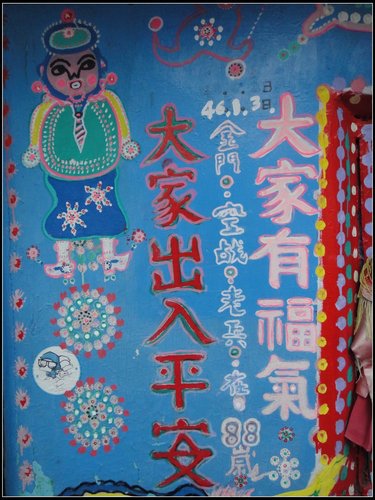 大家有福氣
46.1.3日
金門.空战.老兵.在.88歲
大家出入平安